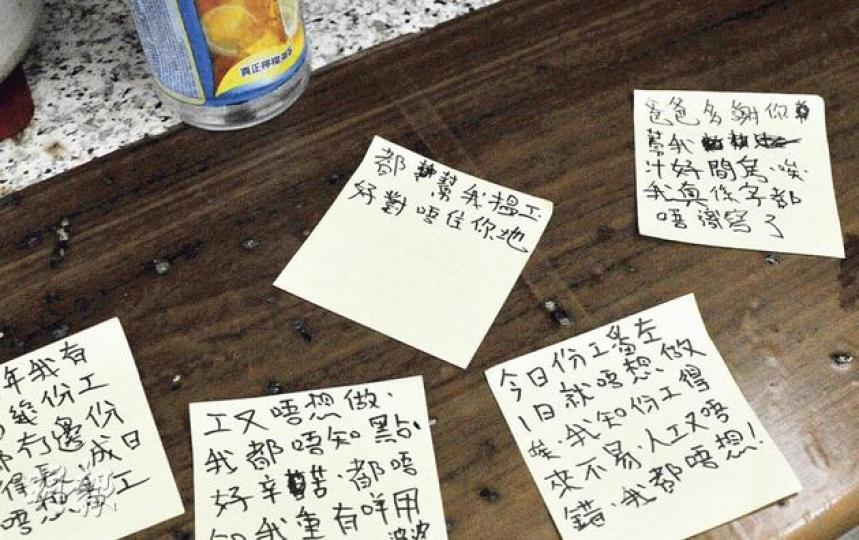 真正檸檬茶
爸爸多謝你
幫我
汁好間寫、唉、
我真係字都
唔識寫了
都幫我搵工
好對唔住你地
今日份工寫左
1日就唔想做
埃、我知份工得
來不易、人工又唔
錯、我都唔想!
年我有
幾份工
冇邊份
得 成日
唔想 工
工又唔想做、
我都唔知點、
好辛苦、都唔
知我重有咩用
婆婆